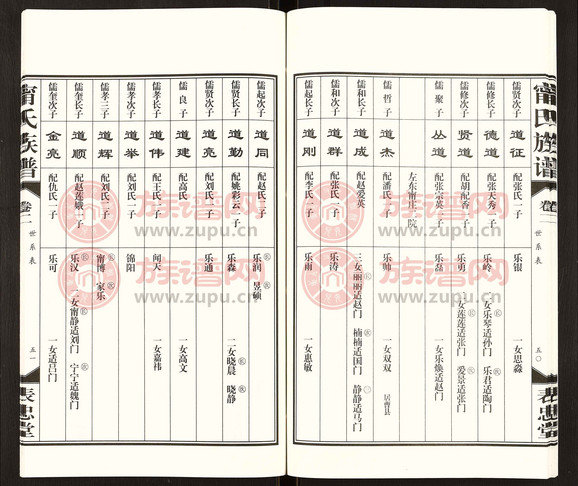 甯氏族谱
卷二
世系表
五〇
表忠堂
儒轮次子
道征
配张氏一子
乐银
一女思淼
儒修长子
德道
配张天秀一子
乐岭
一女乐琴适孙门 乐君适陶门
儒修次子
贤道
配胡配香一子
乐勇
一女莲莲适张门 爱景适张门
儒聚子
丛道
配张宗英一子
乐磊
一女乐焕适赵门
左东甯庄二院
儒哲子
道杰
配潘氏一子
乐帅
一女双双
居曹县
儒和长子
道成
配赵爱英
三女丽丽适赵门 楠楠适国门 静静适马门
儒和次子
道群
配张氏一子
乐涛
儒起长子
道刚
配李氏一子
乐雨
一女惠敏
儒起次子
道同
配赵氏二子
乐润 昱硕
儒贤长子
道勤
配姚彩云一子
乐森
二女晓晨 晓静
儒贤次子
道亮
配刘氏一子
乐通
儒良子
道建
配高氏
一女高文
儒孝长子
道伟
配王氏一子
闻天
一女嘉祎
儒孝次子
道举
配刘氏一子
锦阳
儒孝三子
道辉
配刘氏二子
甯博 家乐
儒奎长子
道顺
配赵莲娥一子
乐汉
二女甯静适刘门 宁宁适魏门
儒奎次子
金亮
配仇氏一子
乐可
一女适吕门
甯氏族谱
卷二
世系表
五一
表忠堂
族谱网
www.zupu.cn
族谱网
www.zupu.cn